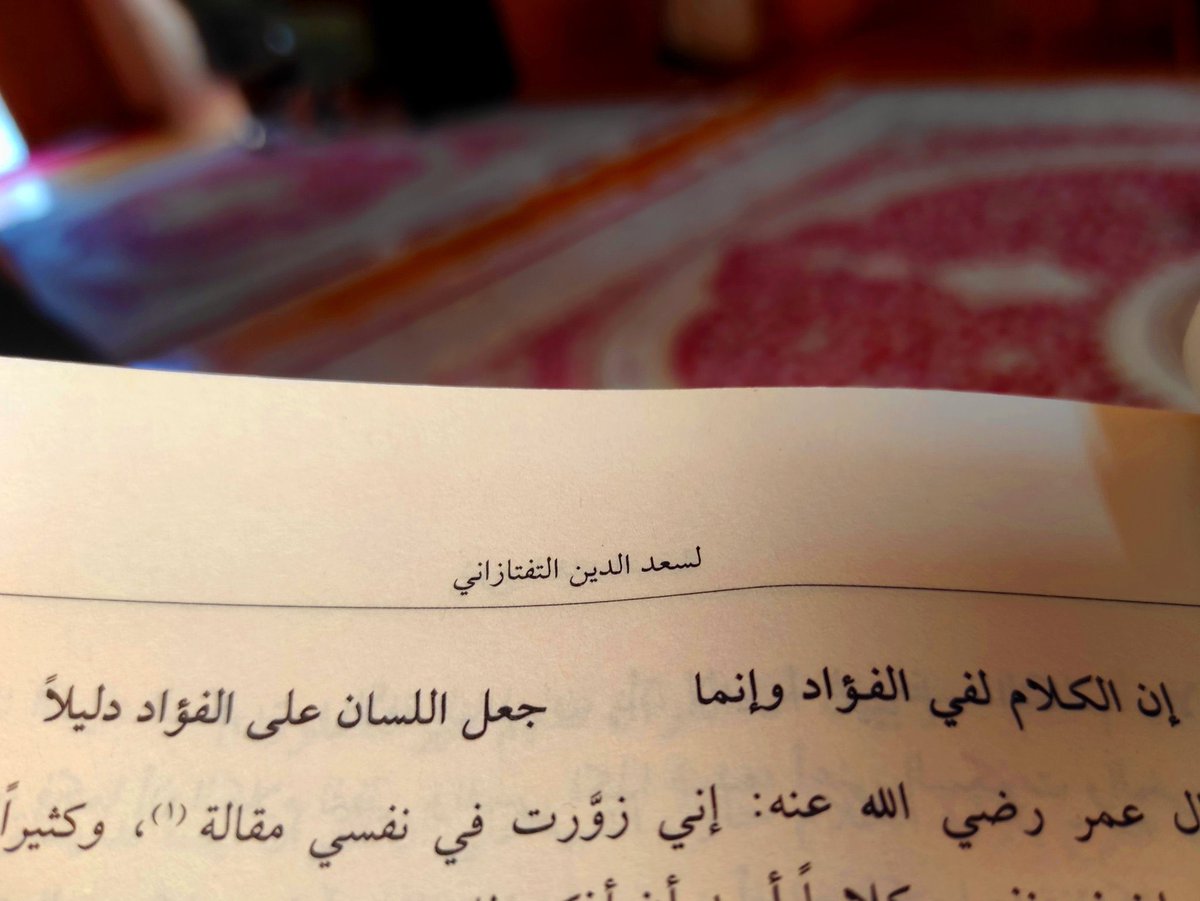 لسعد الدين التفتازاني
إن الكلام لفي الفؤاد وإنما جعل اللسان على الفؤاد دليلاً
عمر رضي الله عنه: إني زوَّرت في نفسي مقالة (١)، وكثيراً